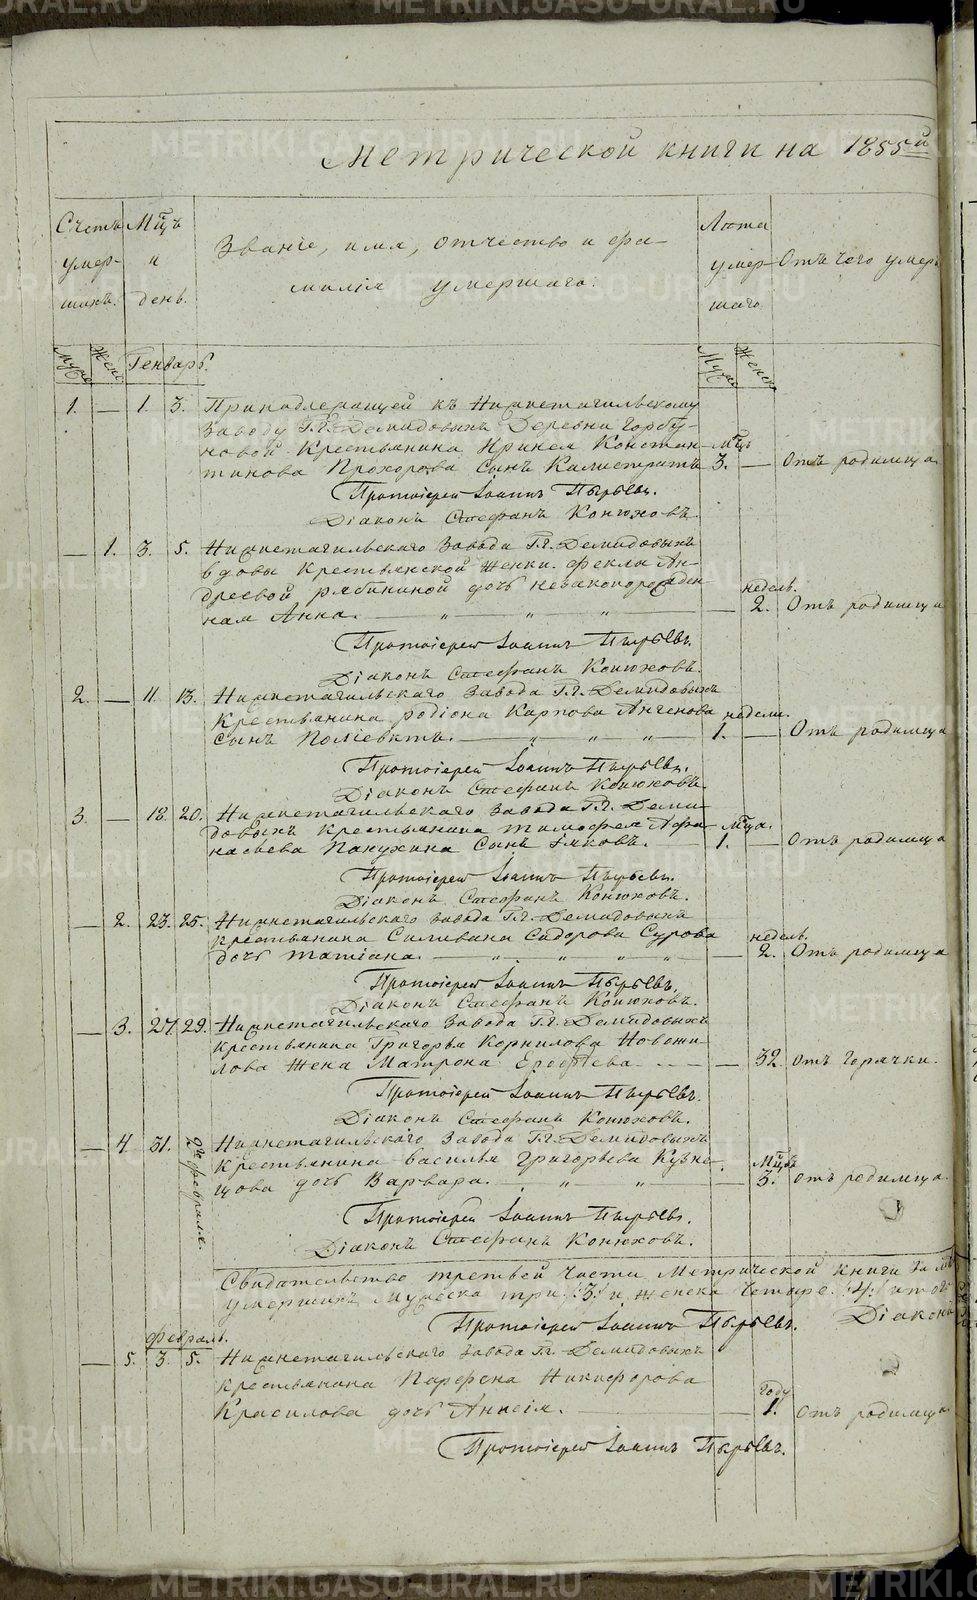 Метрической книги на 1855й
Счетъ умер- шихъ.
Мцъ и день.
Званіе, имя, отчество и фа-
милія умершаго.
Лѣта умер- шаго
Отъ чего умеръ
Муж Жен Генварь. Муж Женс
1. — 1. 3. Принадлежащей къ Нижнетагильскому
заводу Г.г. Демидовыхъ Деревни Горбу-
новой Крестьянина Иринея Констан- Мцъ
тинова Прохорова Сынъ Калистратъ 3. — Отъ родимца
Протоіерей Іоаннъ Пырьевъ.
Діаконъ Стефанъ Конюховъ.
— 1. 3. 5. Нижнетагильскаго Завода Г.г. Демидовыхъ
вдовы Крестьянской Женки Феклы Ан-
дреевой Рябининой дочь незаконорожден недель.
ная Анна. — 2. Отъ родимца
Протоіерей Іоаннъ Пырьевъ.
Діаконъ Стефанъ Конюховъ.
2. — 11. 13. Нижнетагильскаго Завода Г.г. Демидовыхъ
Крестьянина Родіона Карпова недели.
Сынъ Поліевктъ. 1. — Отъ родимца
Протоіерей Іоаннъ Пырьевъ.
Діаконъ Стефанъ Конюховъ.
3. — 18. 20. Нижнетагильскаго Завода Г.г. Деми-
довыхъ Крестьянина Тимофея Афа- Мца.
насьева Сынъ Іаковъ. 1. — Отъ родимца
Протоіерей Іоаннъ Пырьевъ.
Діаконъ Стефанъ Конюховъ.
— 2. 23. 25. Нижнетагильскаго Завода Г.г. Демидовыхъ
Крестьянина Силивана Сидорова Сурова недель.
дочь Татіана. — 2. Отъ родимца
Протоіерей Іоаннъ Пырьевъ.
Діаконъ Стефанъ Конюховъ.
— 3. 27. 29. Нижнетагильскаго Завода Г.г. Демидовыхъ
Крестьянина Григорья Корнилова Новожи-
лова Жена Матрона Ерофѣева — 32 Отъ Горячки.
Протоіерей Іоаннъ Пырьевъ.
Діаконъ Стефанъ Конюховъ.
— 4 31. 2го февраля. Нижнетагильскаго Завода Г.г. Демидовыхъ
Крестьянина Василья Григорьева Кузне- Мцъ
цова дочь Варвара. — 3. Отъ родимца.
Протоіерей Іоаннъ Пырьевъ.
Діаконъ Стефанъ Конюховъ.
Свидательство третьей Части Метрической Книги За
умершихъ Мужеска три /3/ и Женска Четыре /4/ итого
Протоіерей Іоаннъ Пырьевъ. Діаконъ
Февраль.
— 5. 3. 5. Нижнетагильскаго Завода Гг. Демидовыхъ
Крестьянина Парфена Никифорова Году
Красилова дочь Анисія. — 1. Отъ родимца
Протоіерей Іоаннъ Пырьевъ.
METRIKI.GASO-URAL.RU